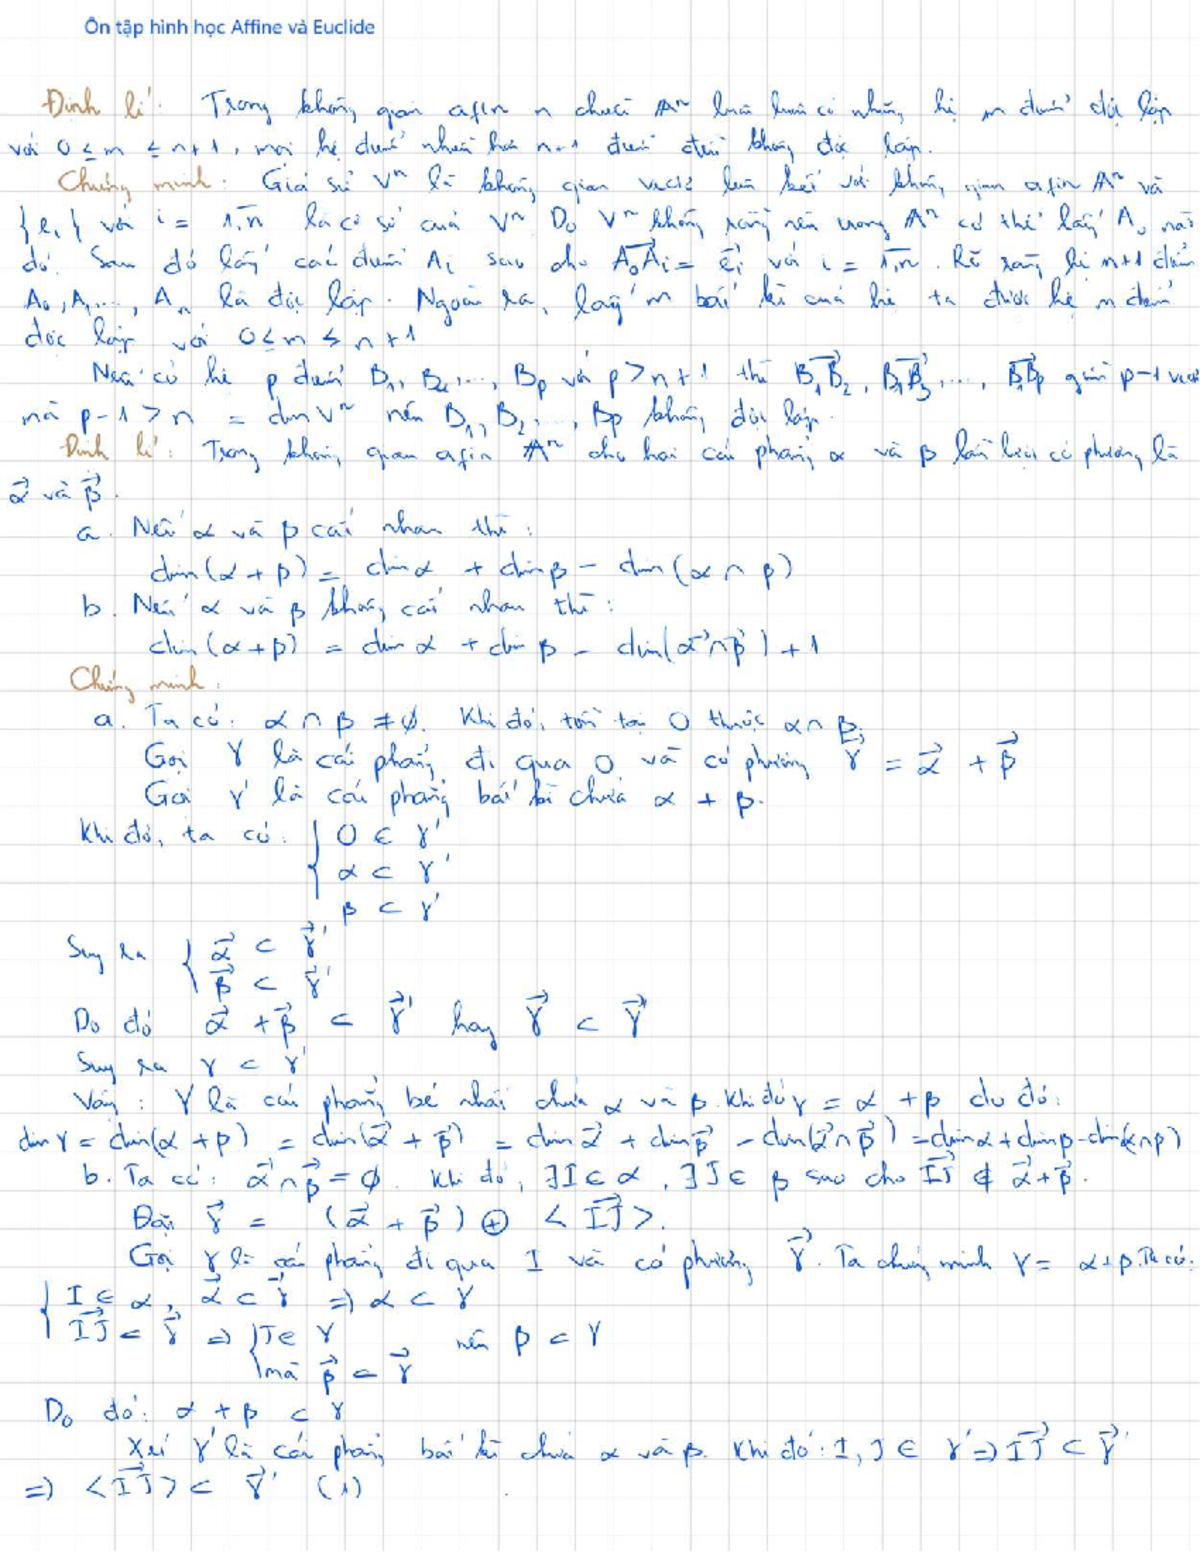 Ôn tập hình học Affine và Euclide
Định lí: Trong không gian afin n chiều Aⁿ luôn luôn có những hệ m điểm độc lập
với 0 ≤ m ≤ n+1, mọi hệ điểm nhiều hơn n+1 điểm đều không độc lập.
Chứng minh: Giả sử Vⁿ là không gian vectơ liên kết với không gian afin Aⁿ và
{eᵢ} với i = 1,n là cơ sở của Vⁿ. Do Vⁿ không rỗng nên trong Aⁿ có thể lấy A₀ nào
đó. Sau đó lấy các điểm Aᵢ sao cho A₀Aᵢ→ = eᵢ→ với i = 1,n. Rõ ràng hệ n+1 điểm
A₀, A₁, ..., Aₙ là độc lập. Ngoài ra, lấy m bất kì của hệ ta được hệ m điểm
độc lập với 0 ≤ m ≤ n+1
Nếu có hệ p điểm B₁, B₂, ..., Bp với p > n+1 thì B₁B₂→, B₁B₃→, ..., B₁Bp→ gồm p-1 vectơ
mà p-1 > n = dim Vⁿ nên B₁, B₂, ..., Bp không độc lập.
Định lí: Trong không gian afin Aⁿ cho hai cái phẳng α và β lần lượt có phương là
α→ và β→.
a. Nếu α và β cắt nhau thì:
dim(α + β) = dim α + dim β - dim(α ∩ β)
b. Nếu α và β không cắt nhau thì:
dim(α+β) = dim α + dim β - dim(α→ ∩ β→) + 1
Chứng minh:
a. Ta có: α ∩ β ≠ ∅. Khi đó, tồn tại O thuộc α ∩ β.
Gọi γ là cái phẳng đi qua O và có phương γ→ = α→ + β→
Gọi γ' là cái phẳng bất kì chứa α + β.
Khi đó, ta có: { O ∈ γ'
α ⊂ γ'
β ⊂ γ'
Suy ra { α→ ⊂ γ→'
β→ ⊂ γ→'
Do đó α→ + β→ ⊂ γ→' hay γ→ ⊂ γ→'
Suy ra γ ⊂ γ'
Vậy: γ là cái phẳng bé nhất chứa α và β. Khi đó γ = α + β do đó:
dim γ = dim(α + β) = dim(α→ + β→) = dim α→ + dim β→ - dim(α→ ∩ β→) = dim α + dim β - dim(α ∩ β)
b. Ta có: α→ ∩ β→ = ∅. Khi đó, ∃I ∈ α, ∃J ∈ β sao cho IJ→ ∉ α→ + β→.
Đặt γ→ = (α→ + β→) ⊕ < IJ→ >.
Gọi γ là cái phẳng đi qua I và có phương γ→. Ta chứng minh γ = α+β. Ta có:
{ I ∈ α, α→ ⊂ γ→ ⇒ α ⊂ γ
IJ→ ⊂ γ→ ⇒ { J ∈ γ nên β ⊂ γ
mà β→ ⊂ γ→
Do đó: α + β ⊂ γ
Xét γ' là cái phẳng bất kì chứa α và β. Khi đó: I, J ∈ γ' ⇒ IJ→ ⊂ γ→'
⇒ < IJ→ > ⊂ γ→' (1)